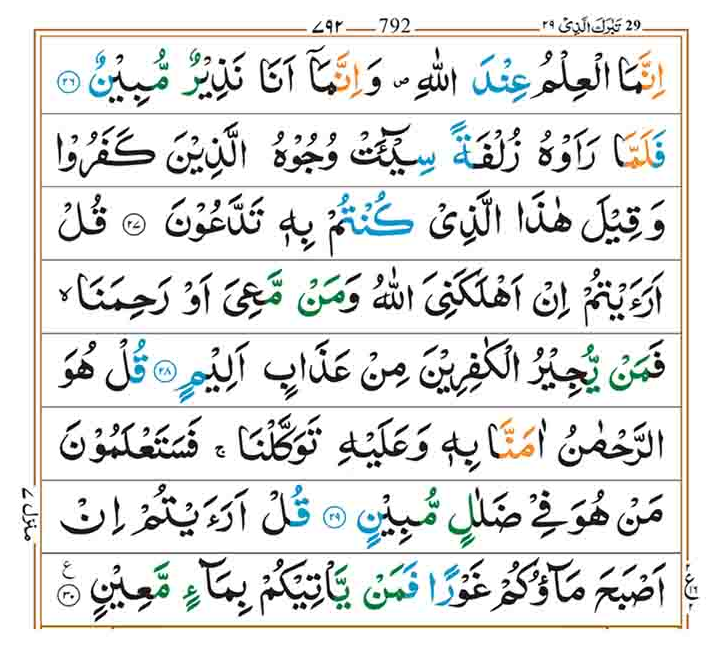 29 تَبٰرَكَ الَّذِىْ ٢٩ 792 ٧٩٢
اِنَّمَا الْعِلْمُ عِنْدَ اللّٰهِ ۪ وَاِنَّمَاۤ اَنَا نَذِيْرٌ مُّبِيْنٌ ۝٢٦
فَلَمَّا رَاَوْهُ زُلْفَةً سِيْٓـَٔتْ وُجُوْهُ الَّذِيْنَ كَفَرُوْا
وَقِيْلَ هٰذَا الَّذِىْ كُنْتُمْ بِهٖ تَدَّعُوْنَ ۝٢٧ قُلْ
اَرَءَيْتُمْ اِنْ اَهْلَكَنِىَ اللّٰهُ وَمَنْ مَّعِىَ اَوْ رَحِمَنَا ۙ
فَمَنْ يُّجِيْرُ الْكٰفِرِيْنَ مِنْ عَذَابٍ اَلِيْمٍ ۝٢٨ قُلْ هُوَ
الرَّحْمٰنُ اٰمَنَّا بِهٖ وَعَلَيْهِ تَوَكَّلْنَا ۚ فَسَتَعْلَمُوْنَ
مَنْ هُوَ فِىْ ضَلٰلٍ مُّبِيْنٍ ۝٢٩ قُلْ اَرَءَيْتُمْ اِنْ
منزل ٧
اَصْبَحَ مَآؤُكُمْ غَوْرًا فَمَنْ يَّاْتِيْكُمْ بِمَآءٍ مَّعِيْنٍ ۝٣٠ ع
٢ ع ١٦ ٢